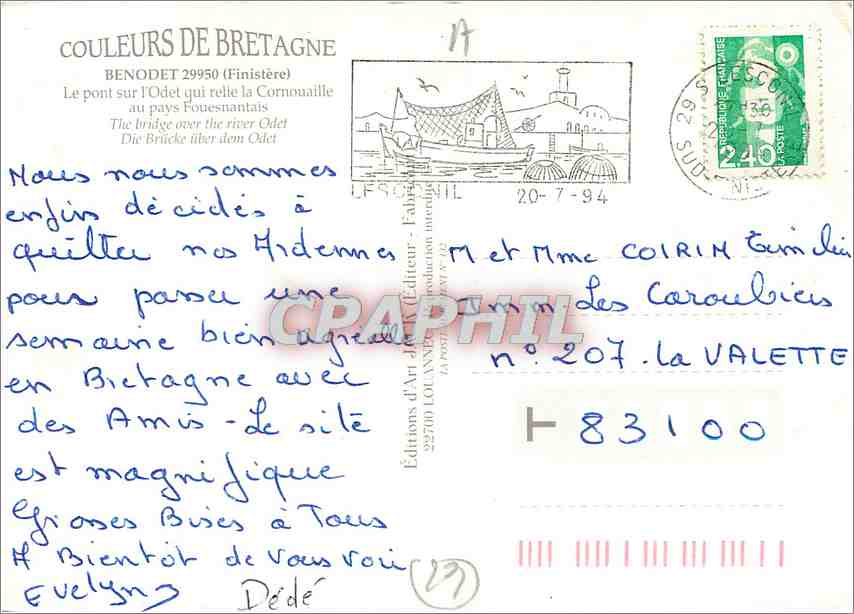 COULEURS DE BRETAGNE
BENODET 29950 (Finistère)
Le pont sur l'Odet qui relie la Cornouaille
au pays Fouesnantais
The bridge over the river Odet
Die Brücke über dem Odet
Nous nous sommes
enfin décidés à
quitter nos Ardennes
pour passer une
semaine bien agréable
en Bretagne avec
des Amis - Le site
est magnifique
Grosses Bises à Tous
A Bientôt de vous voir
Evelyn
Dédé
A
20-7-94
RÉPUBLIQUE FRANÇAISE
2,40
LA POSTE
29 S
SUD
M et Mme COIRIN
Imm Les Caroubiers
n° 207 - La VALETTE
83100
Éditions d'Art JACK (Éditeur - Fabricant
22700 LOUANNEC
Reproduction interdite
CPAPHIL
23